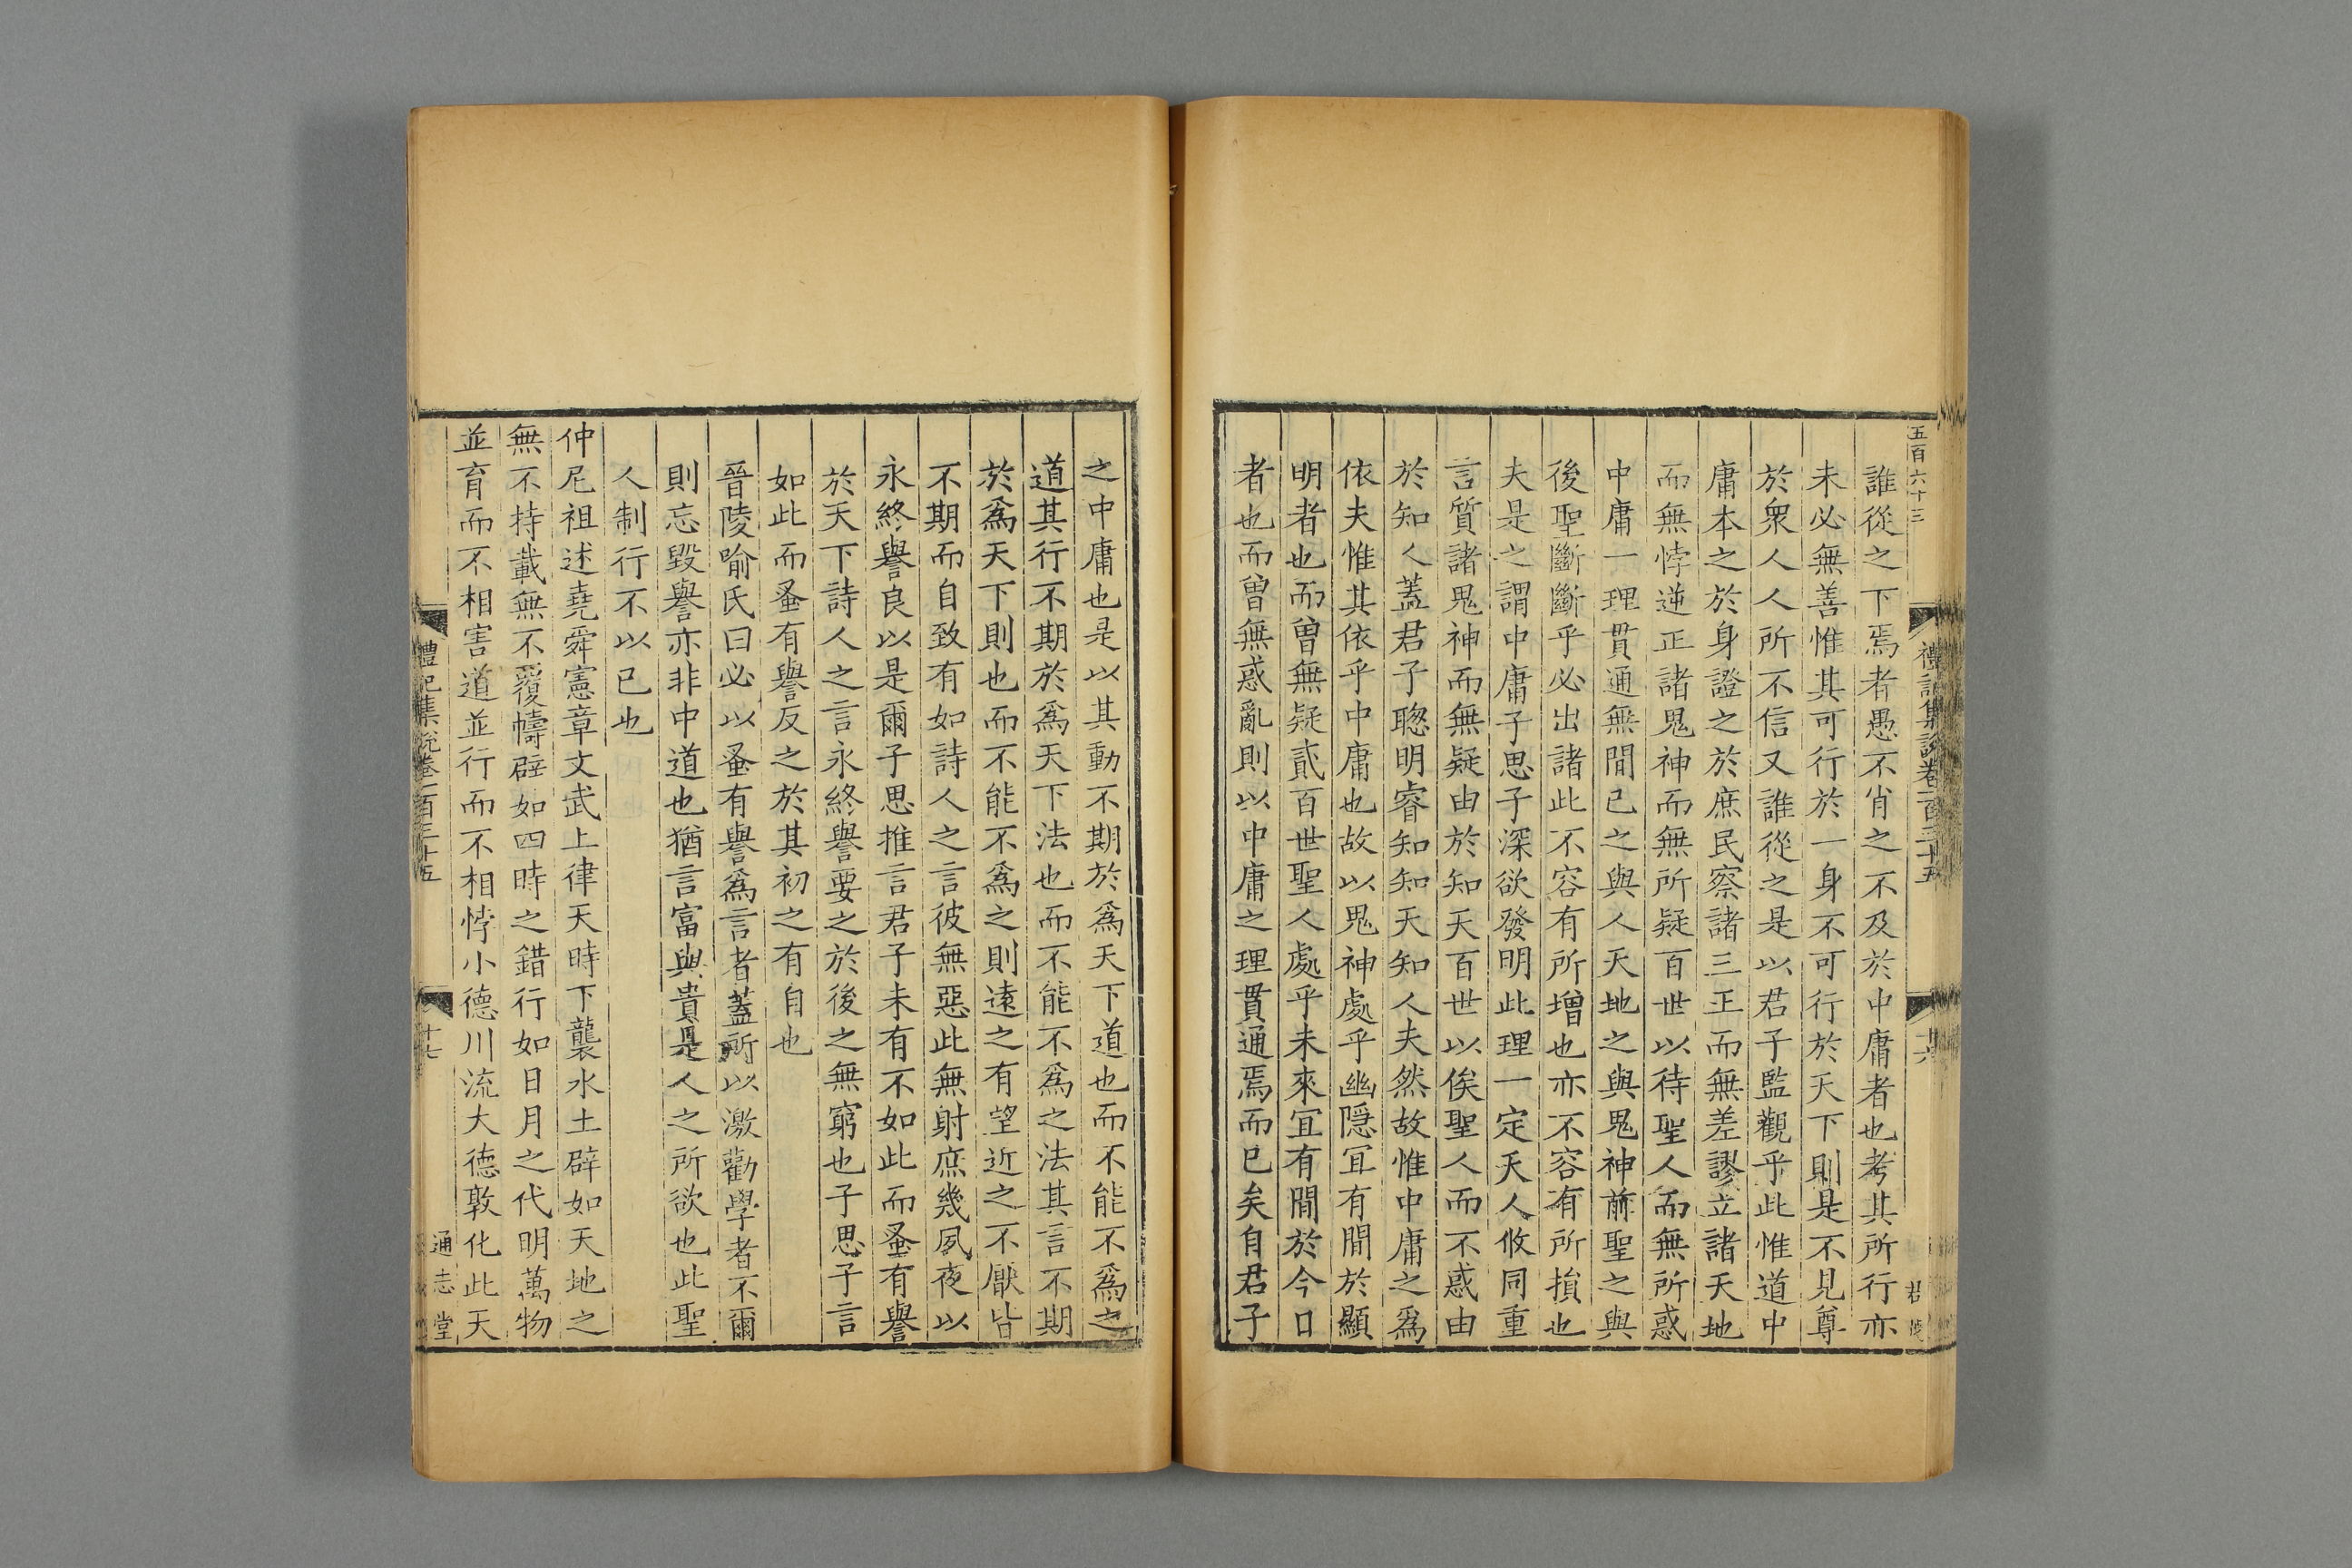 五百六十三
禮記集說卷一百三十五
十六
君
誰從之下焉者愚不肖之不及於中庸者也考其所行亦
未必無善惟其可行於一身不可行於天下則是不見尊
於衆人人所不信又誰從之是以君子監觀乎此惟道中
庸本之於身證之於庶民察諸三王而無差謬立諸天地
而無悖逆正諸鬼神而無所疑百世以待聖人而無所惑
中庸一理貫通無間已之與人天地之與鬼神前聖之與
後聖斷斷乎必出諸此不容有所增也亦不容有所損也
夫是之謂中庸子思子深欲發明此理一定天人攸同重
言質諸鬼神而無疑由於知天百世以俟聖人而不惑由
於知人蓋君子聰明睿知知天知人夫然故惟中庸之爲
依夫惟其依乎中庸也故以鬼神處乎幽隱冝有間於顯
明者也而曾無疑貳百世聖人處乎未來冝有間於今日
者也而曾無惑亂則以中庸之理貫通焉而已矣自君子
之中庸也是以其動不期於爲天下道也而不能不爲之
道其行不期於爲天下法也而不能不爲之法其言不期
於爲天下則也而不能不爲之則遠之有望近之不厭皆
不期而自致有如詩人之言彼無惡此無射庶幾夙夜以
永終譽良以是爾子思推言君子未有不如此而蚤有譽
於天下詩人之言永終譽要之於後之無窮也子思子言
如此而蚤有譽反之於其初之有自也
晉陵喻氏曰必以蚤有譽爲言者蓋所以激勸學者不爾
則忘毀譽亦非中道也猶言富與貴是人之所欲也此聖
人制行不以已也
仲尼祖述堯舜憲章文武上律天時下襲水土辟如天地之
無不持載無不覆幬辟如四時之錯行如日月之代明萬物
並育而不相害道並行而不相悖小德川流大德敦化此天
禮記集說卷一百三十五
十七
通志堂